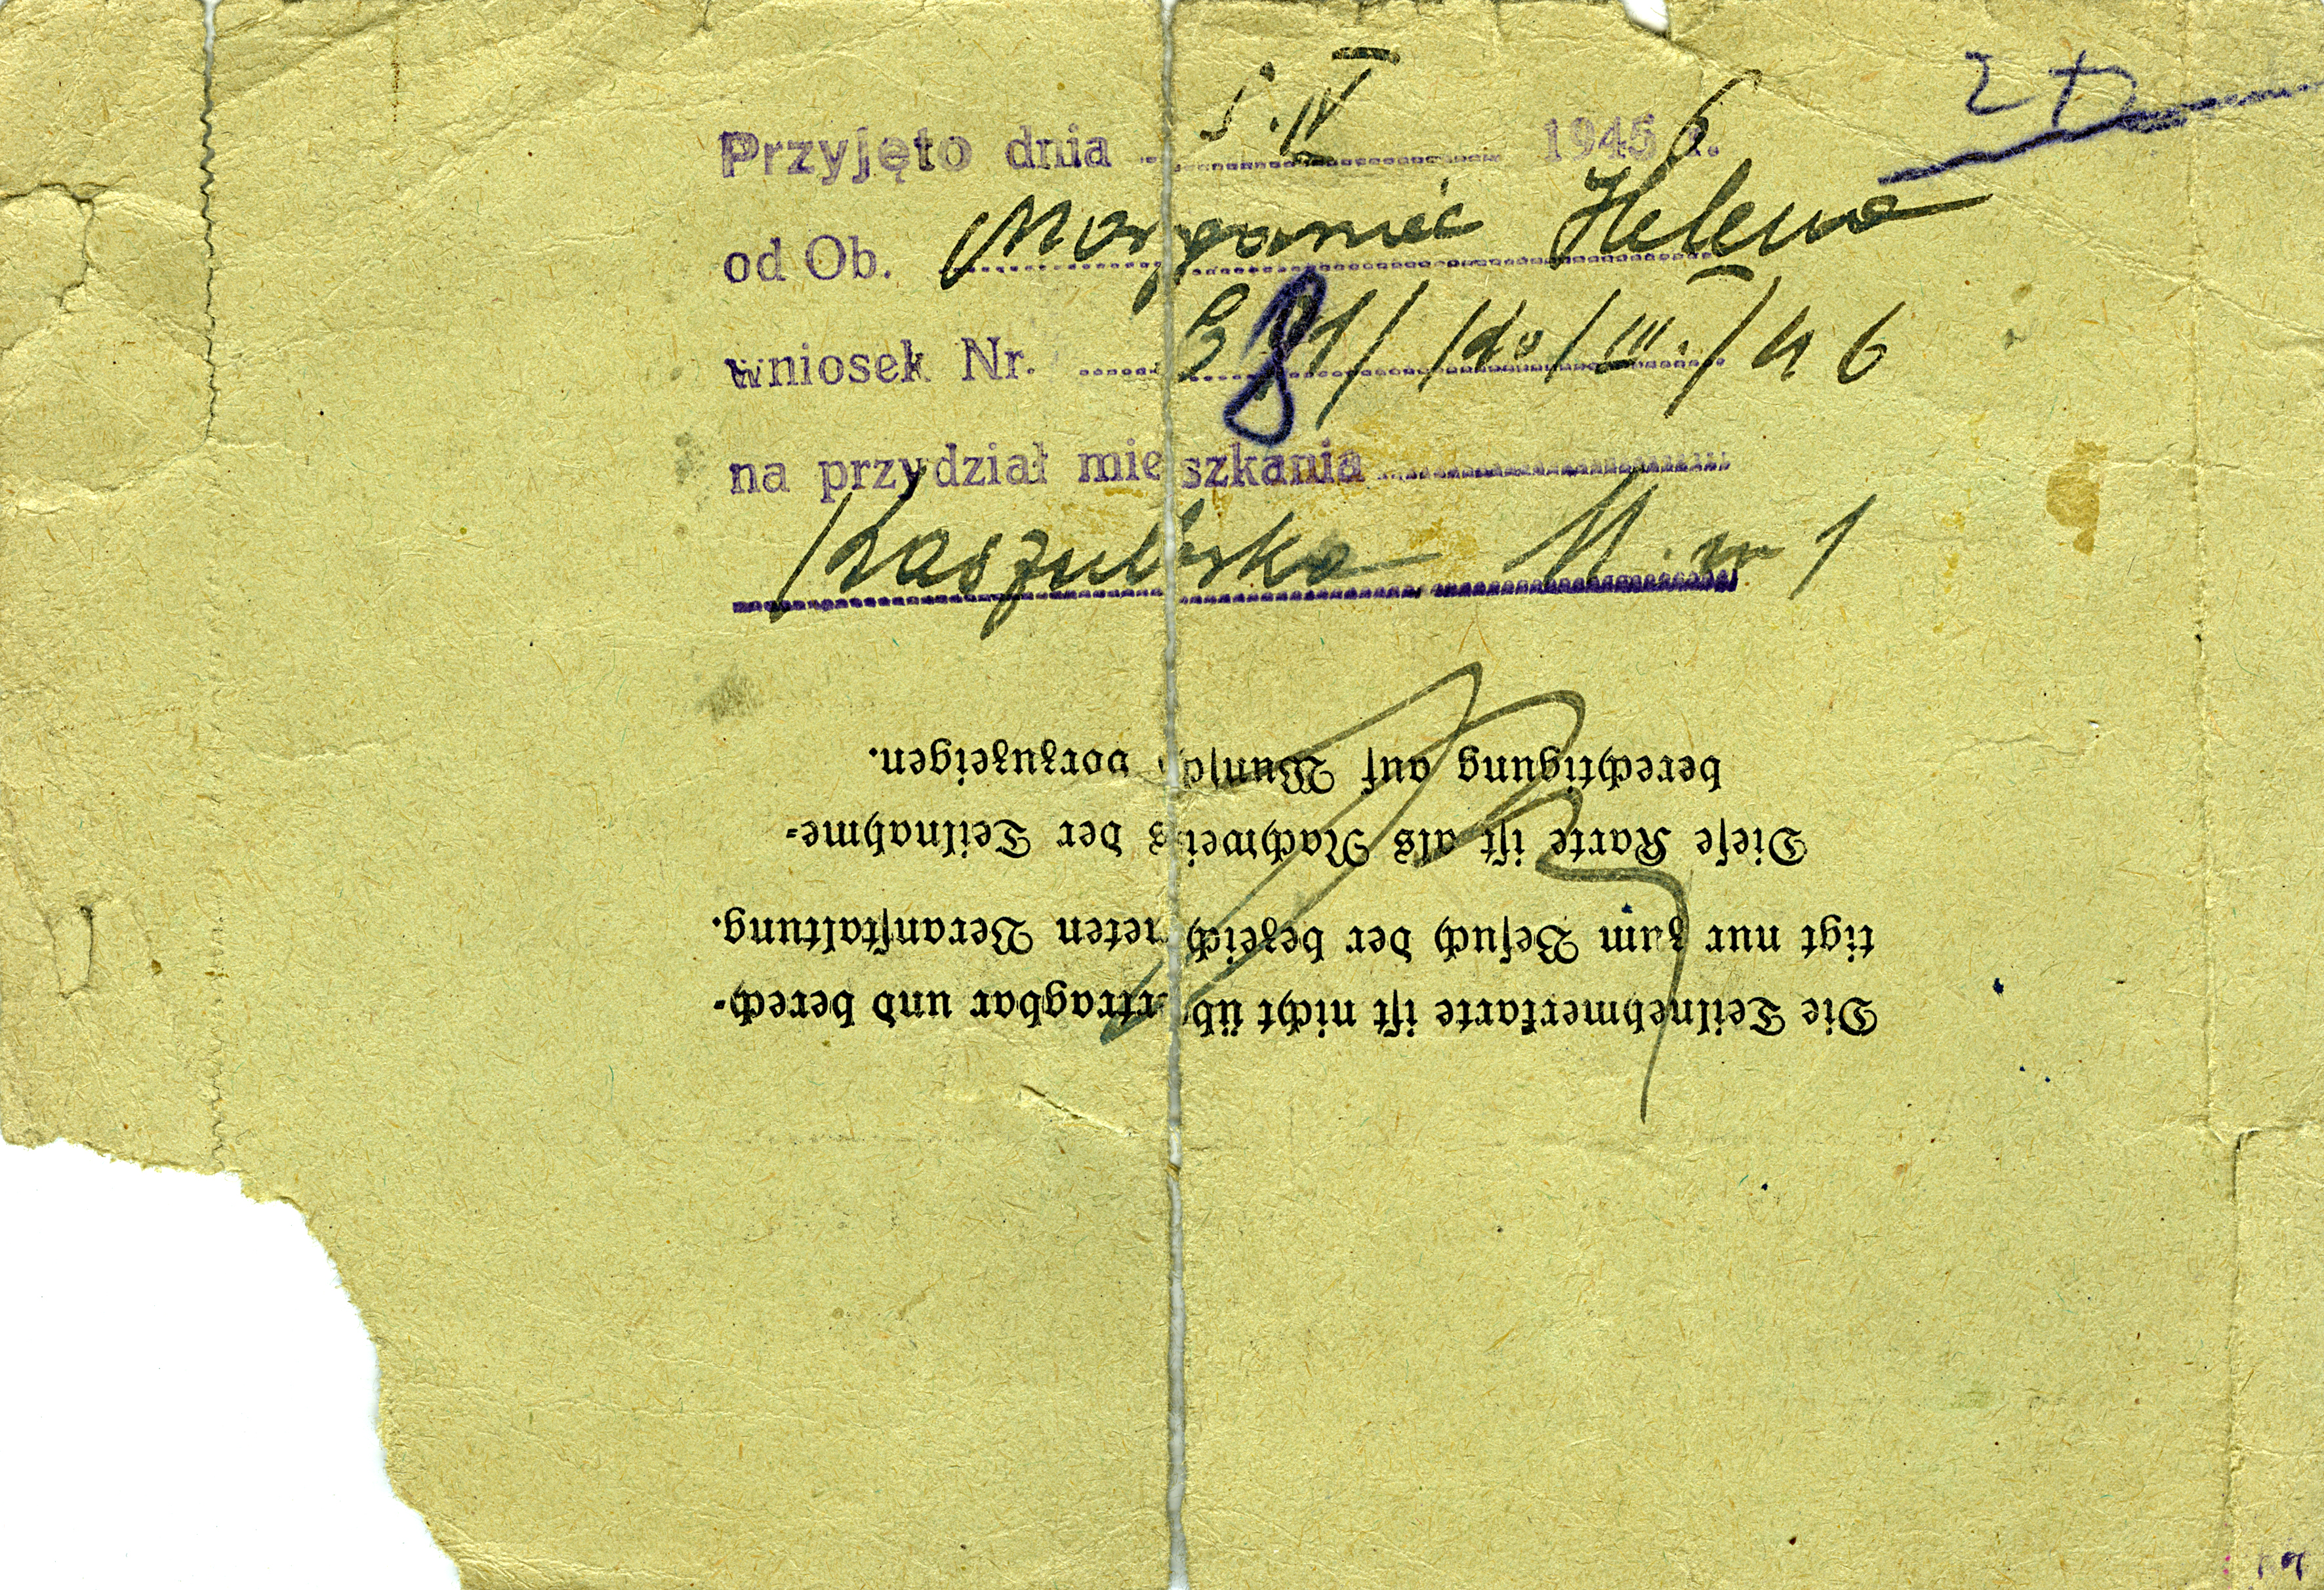 Przyjęto dnia 5.IV 1946 r.
od Ob. Helena
wniosek Nr. 381/ /III./46
na przydział mieszkania
Kaszubska m 1
Die Teilnehmerkarte ist nicht übertragbar und berech-
tigt nur zum Besuch der bezeichneten Veranstaltung.
Diese Karte ist als Nachweis der Teilnahme-
berechtigung auf Wunsch vorzuzeigen.